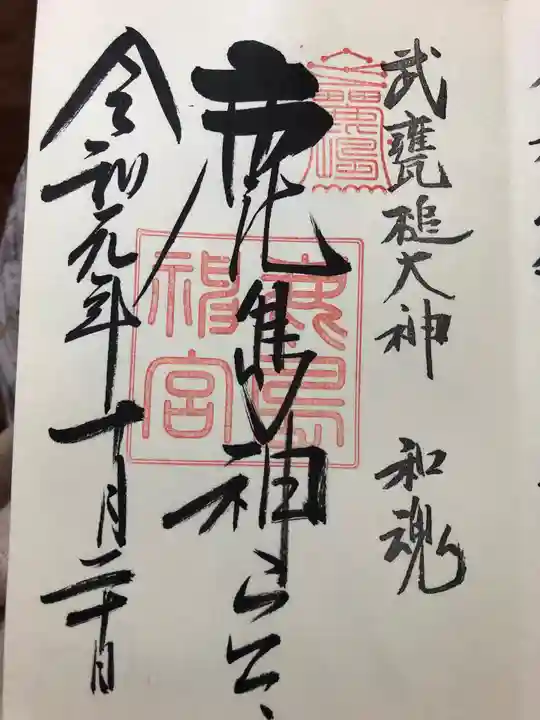 武甕槌大神 和魂
鹿島神宮
鹿島
神宮
令和元年十月二十日